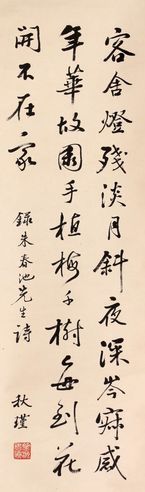 客舍燈殘淡月斜夜深岑寂感
年華故園手植梅千樹每到花
開不在家
錄朱春池先生詩
秋瑾